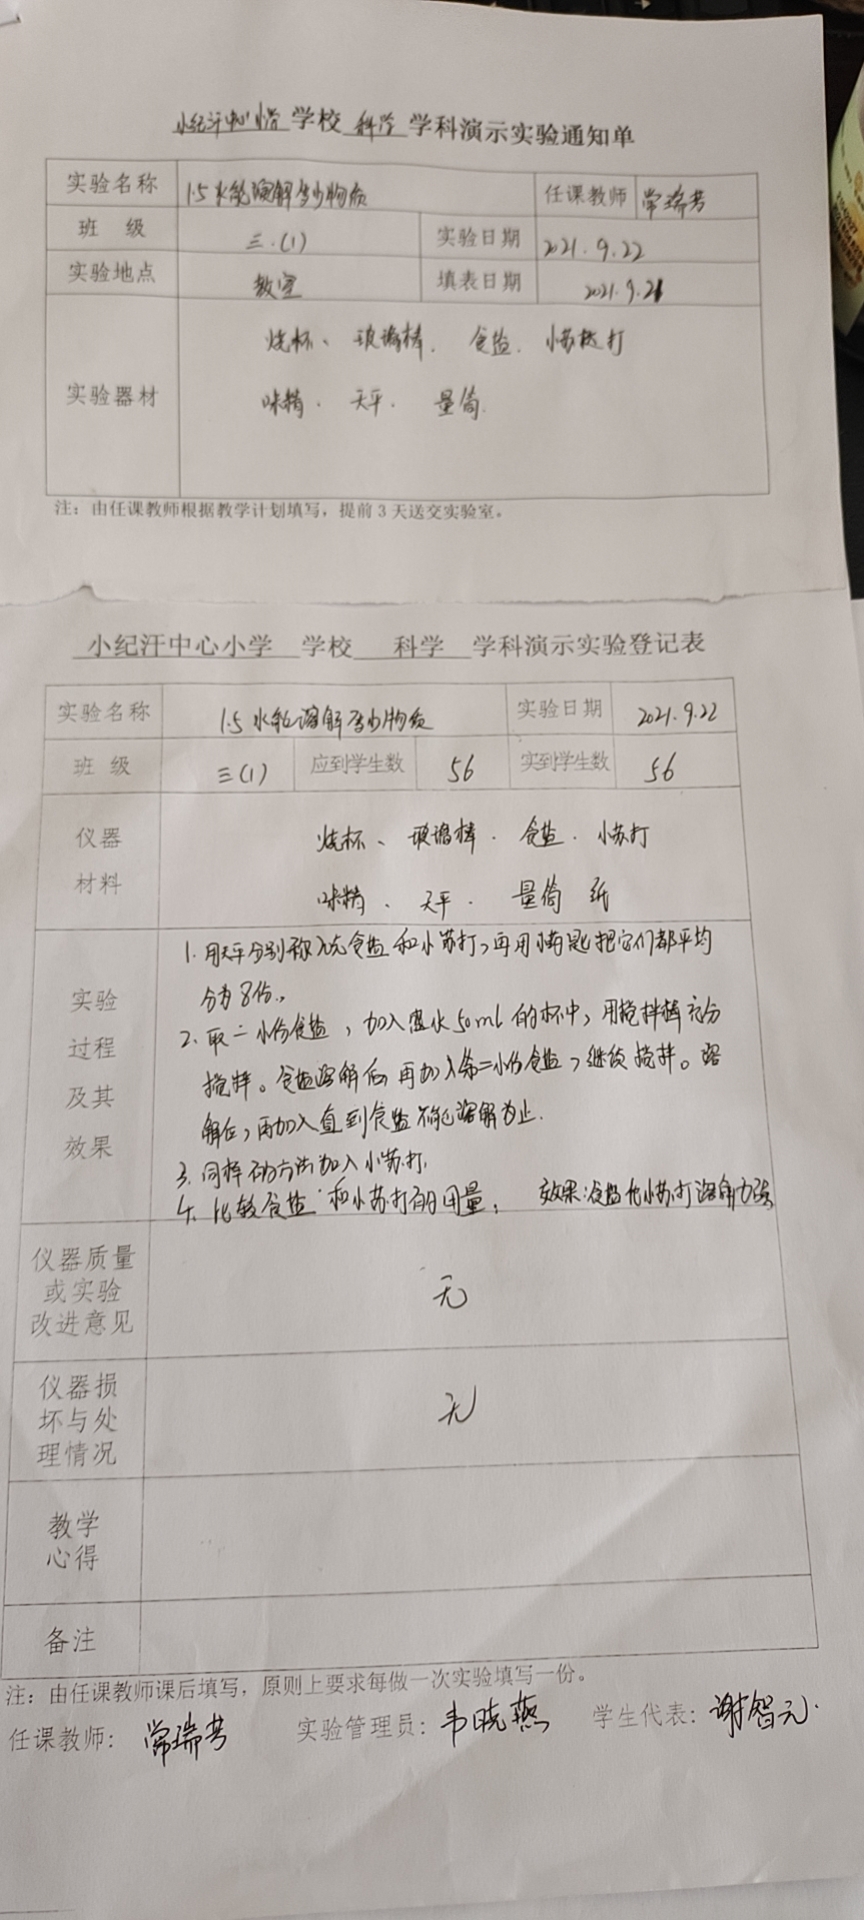 小纪汗中心小学 学校 科学 学科演示实验通知单
实验名称 1.5水能溶解多少物质 任课教师 常瑞芳
班 级 三.(1) 实验日期 2021.9.22
实验地点 教室 填表日期 2021.9.21
实验器材
烧杯、玻璃棒. 食盐. 小苏打
味精. 天平. 量筒.
注：由任课教师根据教学计划填写，提前3天送交实验室。
小纪汗中心小学 学校 科学 学科演示实验登记表
实验名称 1.5水能溶解多少物质 实验日期 2021.9.22
班 级 三(1) 应到学生数 56 实到学生数 56
仪器
材料
烧杯、玻璃棒. 食盐. 小苏打
味精. 天平. 量筒 纸
实验
过程
及其
效果
1. 用天平分别称 食盐和小苏打，再用 把它们都平均
分为8份。
2. 取一小份食盐，加入温水50ml的杯中，用搅拌棒充分
搅拌。食盐溶解后，再加入第二小份食盐，继续搅拌。溶
解后，再加入直到食盐不能溶解为止.
3. 同样的方法加入小苏打.
4. 比较食盐和小苏打的用量. 效果:食盐比小苏打溶解力强
仪器质量
或实验
改进意见
无
仪器损
坏与处
理情况
无
教学
心得
备注
注：由任课教师课后填写，原则上要求每做一次实验填写一份。
任课教师：常瑞芳 实验管理员：韦晓燕 学生代表：谢智元.